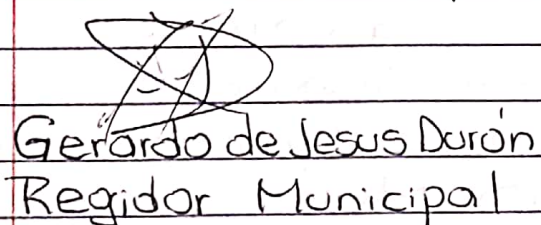 Gerardo de Jesus Durón
Regidor Municipal